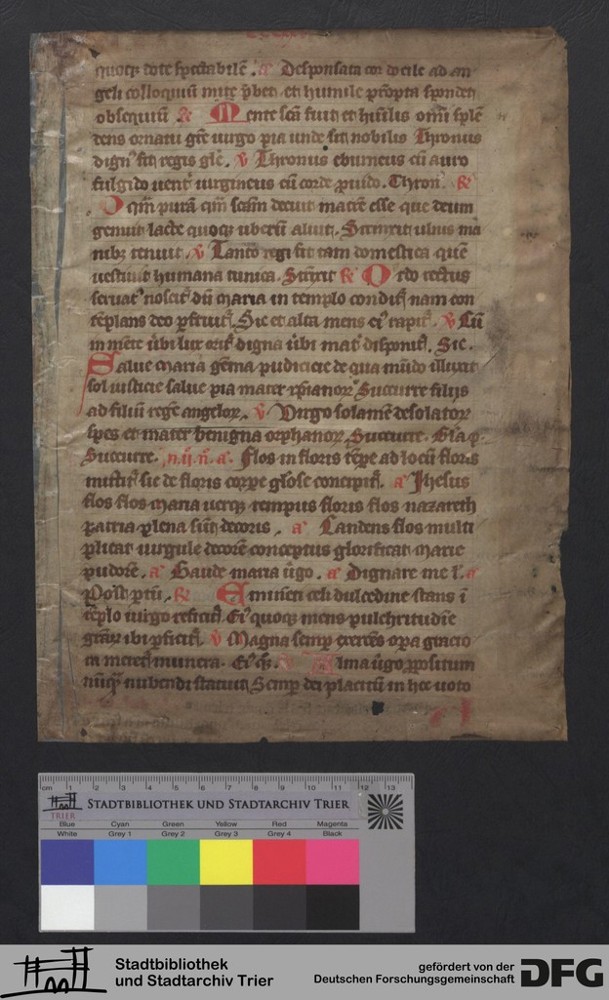 quoque dote spectabilē. a Desponsata cor docile ad an
geli colloquiū mite p̄bet et humile prōpta spondet
obsequiū ℟ Mente scā fuit et hūilis omī splē
dens ornatu gr̄e virgo pia unde fit nobilis Thronus
dign⁹ fit regis gl̄e. ℣ Thronus eburneus cū auro
fulgido venit virgineus cū corde puido. Thron. ℟
O qm̄ purā qm̄ scām decuit matrē esse que deum
genuit lacte quoque uberū aluit. Strinxit ulnis ma
nibꝫ tenuit. ℣ Tanto regi fit tam domestica quē
vestivit humana tunica. Strinxit ℟ Ordo rectus
servat⁹ noscit᷑ dū maria in templo condit᷑ nam con
tēplans deo p̄fruit᷑. Sic et alta mens ei⁹ rapit᷑. ℣ Cū
in mēte ubi luce digna ubi disponit᷑. Sic.
Salve maria gēma pudicicie de qua mūdo illuxit
sol iusticie salve pia mater xp̄ianoꝝ Succurre filiis
ad filiū regē angeloꝝ. ℣ Virgo solamē desolatoꝝ
spes et mater benigna orphanoꝝ Succurre. Gl̄a p̄.
Succurre. in .ij. n̄. a. Flos in floris tp̄re ad locū floris
mittit᷑ sic de floris corpe glose concipit᷑. a Jhesus
flos flos maria verque tempus floris flos nazareth
patria plena sūt decoris. a Candens flos multi
plicat virgule decorē conceptus glorificat marie
pudorē. a Gaude maria v̄go. a Dignare me l. a
Post ptū. ℟ Eminet celi dulcedine stans ī
tēplo virgo reficit᷑ Ei⁹ quoque mens pulchritudīe
gr̄aꝝ ibi pficit᷑. ℣ Magna semp exercēs opa gracio
munera. Ei⁹ q̄. Alma v̄go ppositum
nūq̄ꝫ nubendi statuit Semp dei placitū in hoc voto
cm 1 2 3 4 5 6 7 8 9 10 11 12 13
STADTBIBLIOTHEK UND STADTARCHIV TRIER
TRIER
Blue Cyan Green Yellow Red Magenta
White Grey 1 Grey 2 Grey 3 Grey 4 Black
Stadtbibliothek
und Stadtarchiv Trier
gefördert von der
Deutschen Forschungsgemeinschaft
DFG